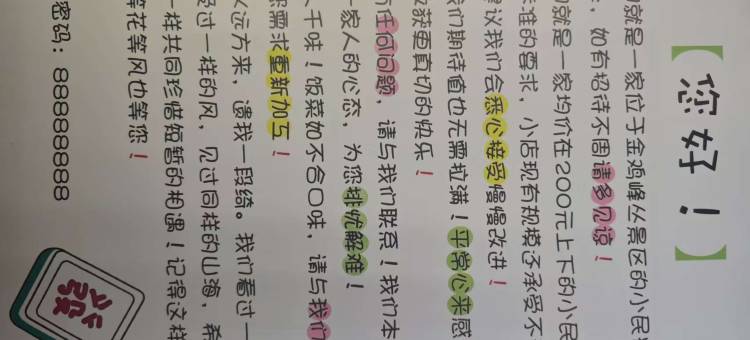 【您好！】
就是一家位于金鸡峰丛景区的小民
，如有招待不周请多见谅！
就是一家均价在200元上下的小民
准的要求，小店现有规模还承受不
议我们会悉心接受慢慢改进！
们期待值也无需拉满！平常心来感
获更真切的快乐！
任何问题，请与我们联系！我们本
家人的心态，为您排忧解难！
千味！饭菜如不合口味，请与我们
需求重新加工！
远方来，遗我一段绮。我们看过一
过一样的风，见过同样的山海，希
一样共同珍惜短暂的相遇！记得这样
等花等风也等您！
密码：88888888